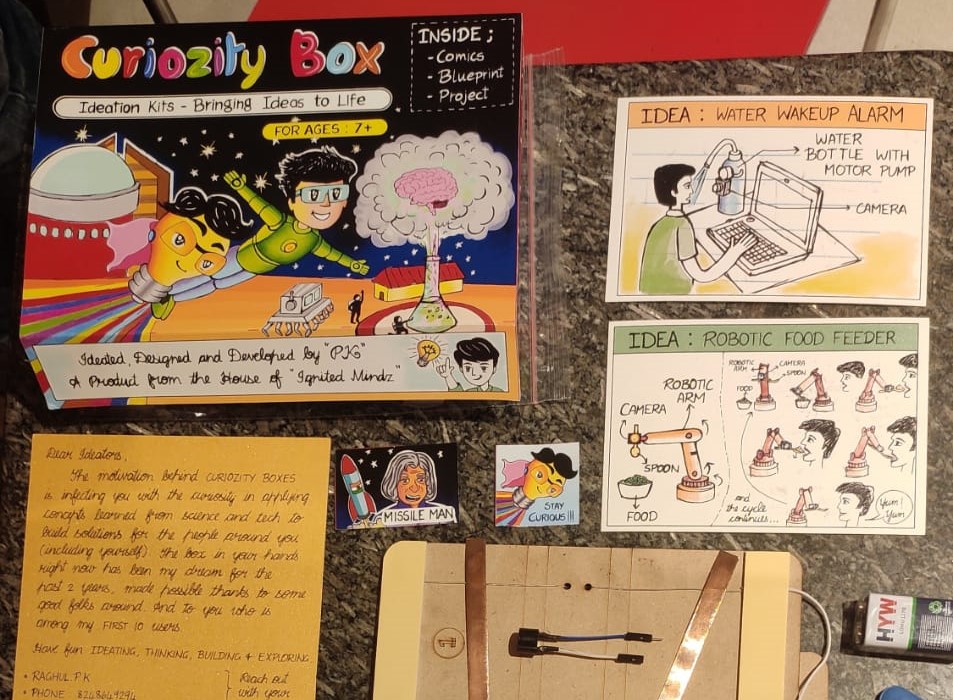 Curiozity Box
Ideation Kits - Bringing Ideas to Life
FOR AGES : 7+
INSIDE ;
- Comics
- Blueprint
- Project
Ideated, Designed and Developed by "PK"
A Product from the House of "Ignited Mindz"
IDEA : WATER WAKEUP ALARM
WATER
BOTTLE WITH
MOTOR PUMP
CAMERA
IDEA : ROBOTIC FOOD FEEDER
ROBOTIC
ARM
CAMERA
SPOON
FOOD
ROBOTIC
ARM
CAMERA
SPOON
FOOD
and
the cycle
continues...
Yum!
Yum
Dear Ideators,
The motivation behind CURIOZITY BOXES
is infecting you with the curiosity in applying
concepts learned from science and tech to
build solutions for the people around you
(including yourself). The box in your hands
right now has been my dream for the
past 2 years, made possible thanks to some
good folks around. And to you who is
among my FIRST 10 users.
Have fun IDEATING, THINKING, BUILDING & EXPLORING
• RAGHUL P K
• PHONE 8248649294
Reach out
with your
MISSILE MAN
STAY
CURIOUS !!!
HYW